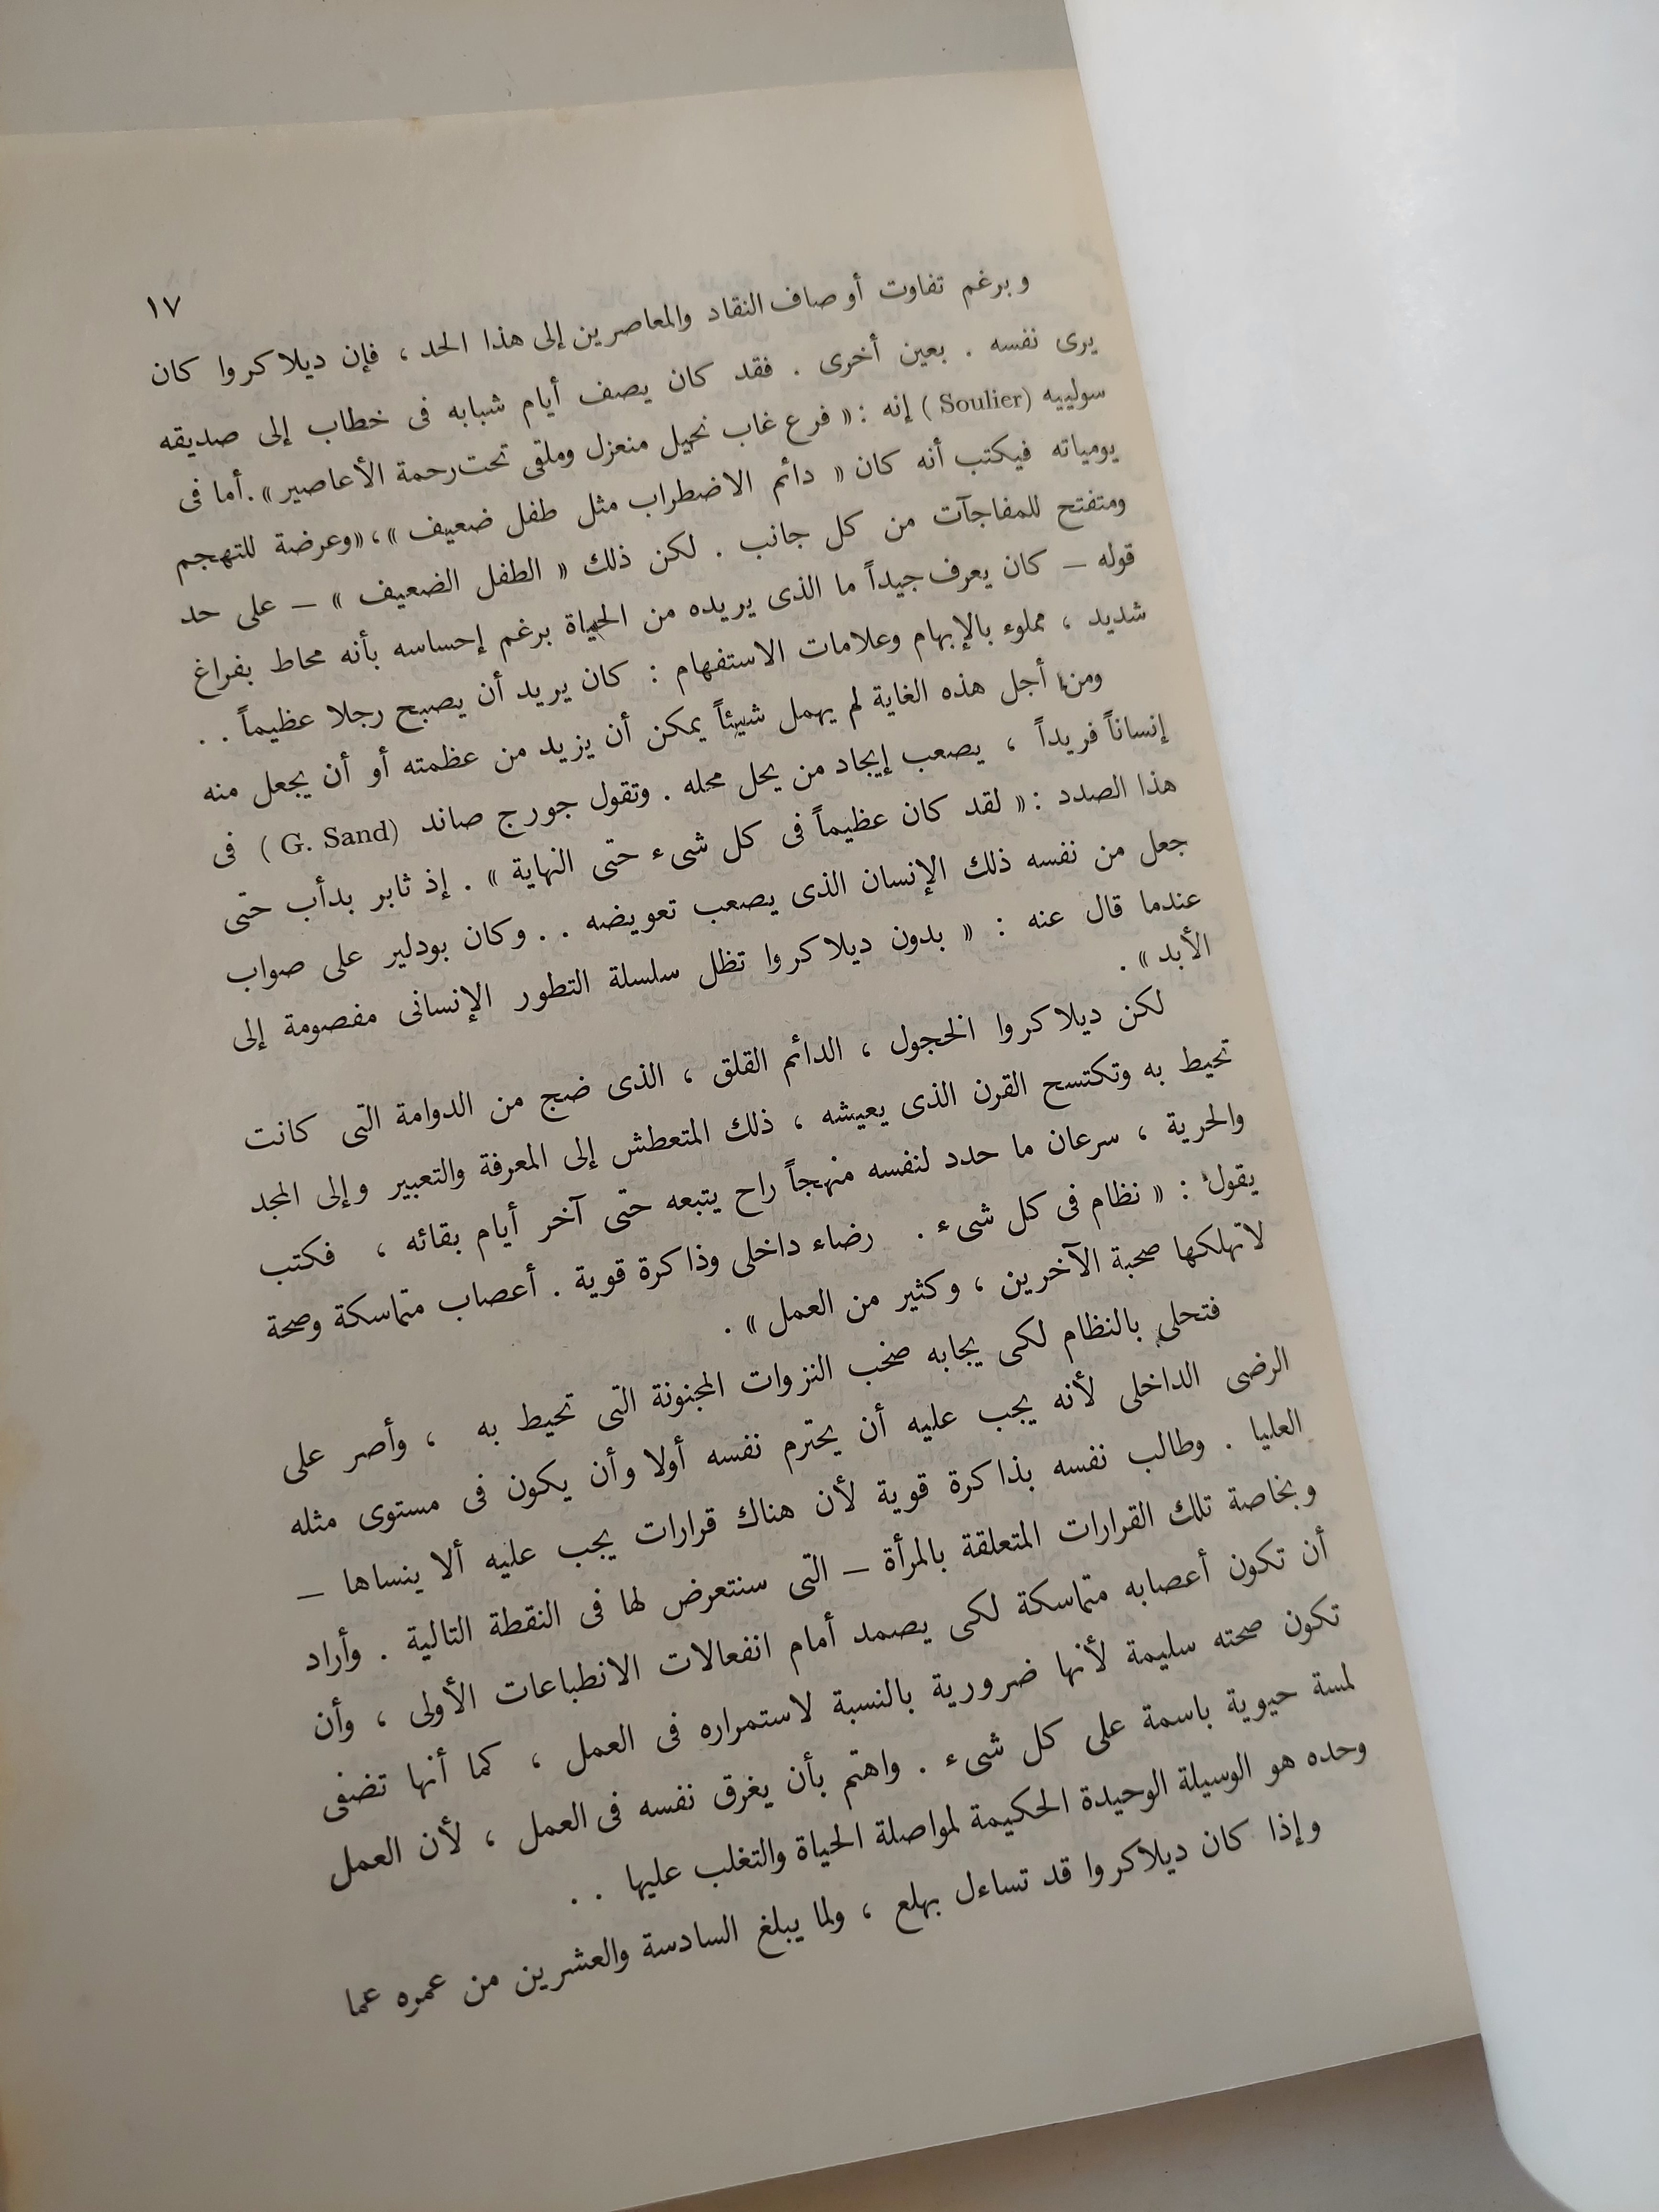 ١٧
وبرغم تفاوت أوصاف النقاد والمعاصرين إلى هذا الحد ، فإن ديلاكروا كان
يرى نفسه . بعين أخرى . فقد كان يصف أيام شبابه فى خطاب إلى صديقه
سولييه (Soulier) إنه : « فرع غاب نحيل منعزل وملقى تحت رحمة الأعاصير » . أما فى
يومياته فيكتب أنه كان « دائم الاضطراب مثل طفل ضعيف » ، « وعرضة للتهجم
ومتفتح للمفاجآت من كل جانب . لكن ذلك « الطفل الضعيف » – على حد
قوله – كان يعرف جيداً ما الذى يريده من الحياة برغم إحساسه بأنه محاط بفراغ
شديد ، مملوء بالإبهام وعلامات الاستفهام : كان يريد أن يصبح رجلا عظيماً . .
ومن أجل هذه الغاية لم يهمل شيئاً يمكن أن يزيد من عظمته أو أن يجعل منه
إنساناً فريداً ، يصعب إيجاد من يحل محله . وتقول جورج صاند (G. Sand) فى
هذا الصدد : « لقد كان عظيماً فى كل شىء حتى النهاية » . إذ ثابر بدأب حتى
جعل من نفسه ذلك الإنسان الذى يصعب تعويضه . . وكان بودلير على صواب
عندما قال عنه : « بدون ديلاكروا تظل سلسلة التطور الإنسانى مفصومة إلى
الأبد » .
لكن ديلاكروا الخجول ، الدائم القلق ، الذى ضج من الدوامة التى كانت
تحيط به وتكتسح القرن الذى يعيشه ، ذلك المتعطش إلى المعرفة والتعبير وإلى المجد
والحرية ، سرعان ما حدد لنفسه منهجاً راح يتبعه حتى آخر أيام بقائه ، فكتب
يقول : « نظام فى كل شىء . رضاء داخلى وذاكرة قوية . أعصاب متماسكة وصحة
لاتهلكها صحبة الآخرين ، وكثير من العمل » .
فتحلى بالنظام لكى يجابه صخب النزوات المجنونة التى تحيط به ، وأصر على
الرضى الداخلى لأنه يجب عليه أن يحترم نفسه أولا وأن يكون فى مستوى مثله
العليا . وطالب نفسه بذاكرة قوية لأن هناك قرارات يجب عليه ألا ينساها –
وبخاصة تلك القرارات المتعلقة بالمرأة – التى سنتعرض لها فى النقطة التالية . وأراد
أن تكون أعصابه متماسكة لكى يصمد أمام انفعالات الانطباعات الأولى ، وأن
تكون صحته سليمة لأنها ضرورية بالنسبة لاستمراره فى العمل ، كما أنها تضفى
لمسة حيوية باسمة على كل شىء . واهتم بأن يغرق نفسه فى العمل ، لأن العمل
وحده هو الوسيلة الوحيدة الحكيمة لمواصلة الحياة والتغلب عليها . .
وإذا كان ديلاكروا قد تساءل بهلع ، ولما يبلغ السادسة والعشرين من عمره عما